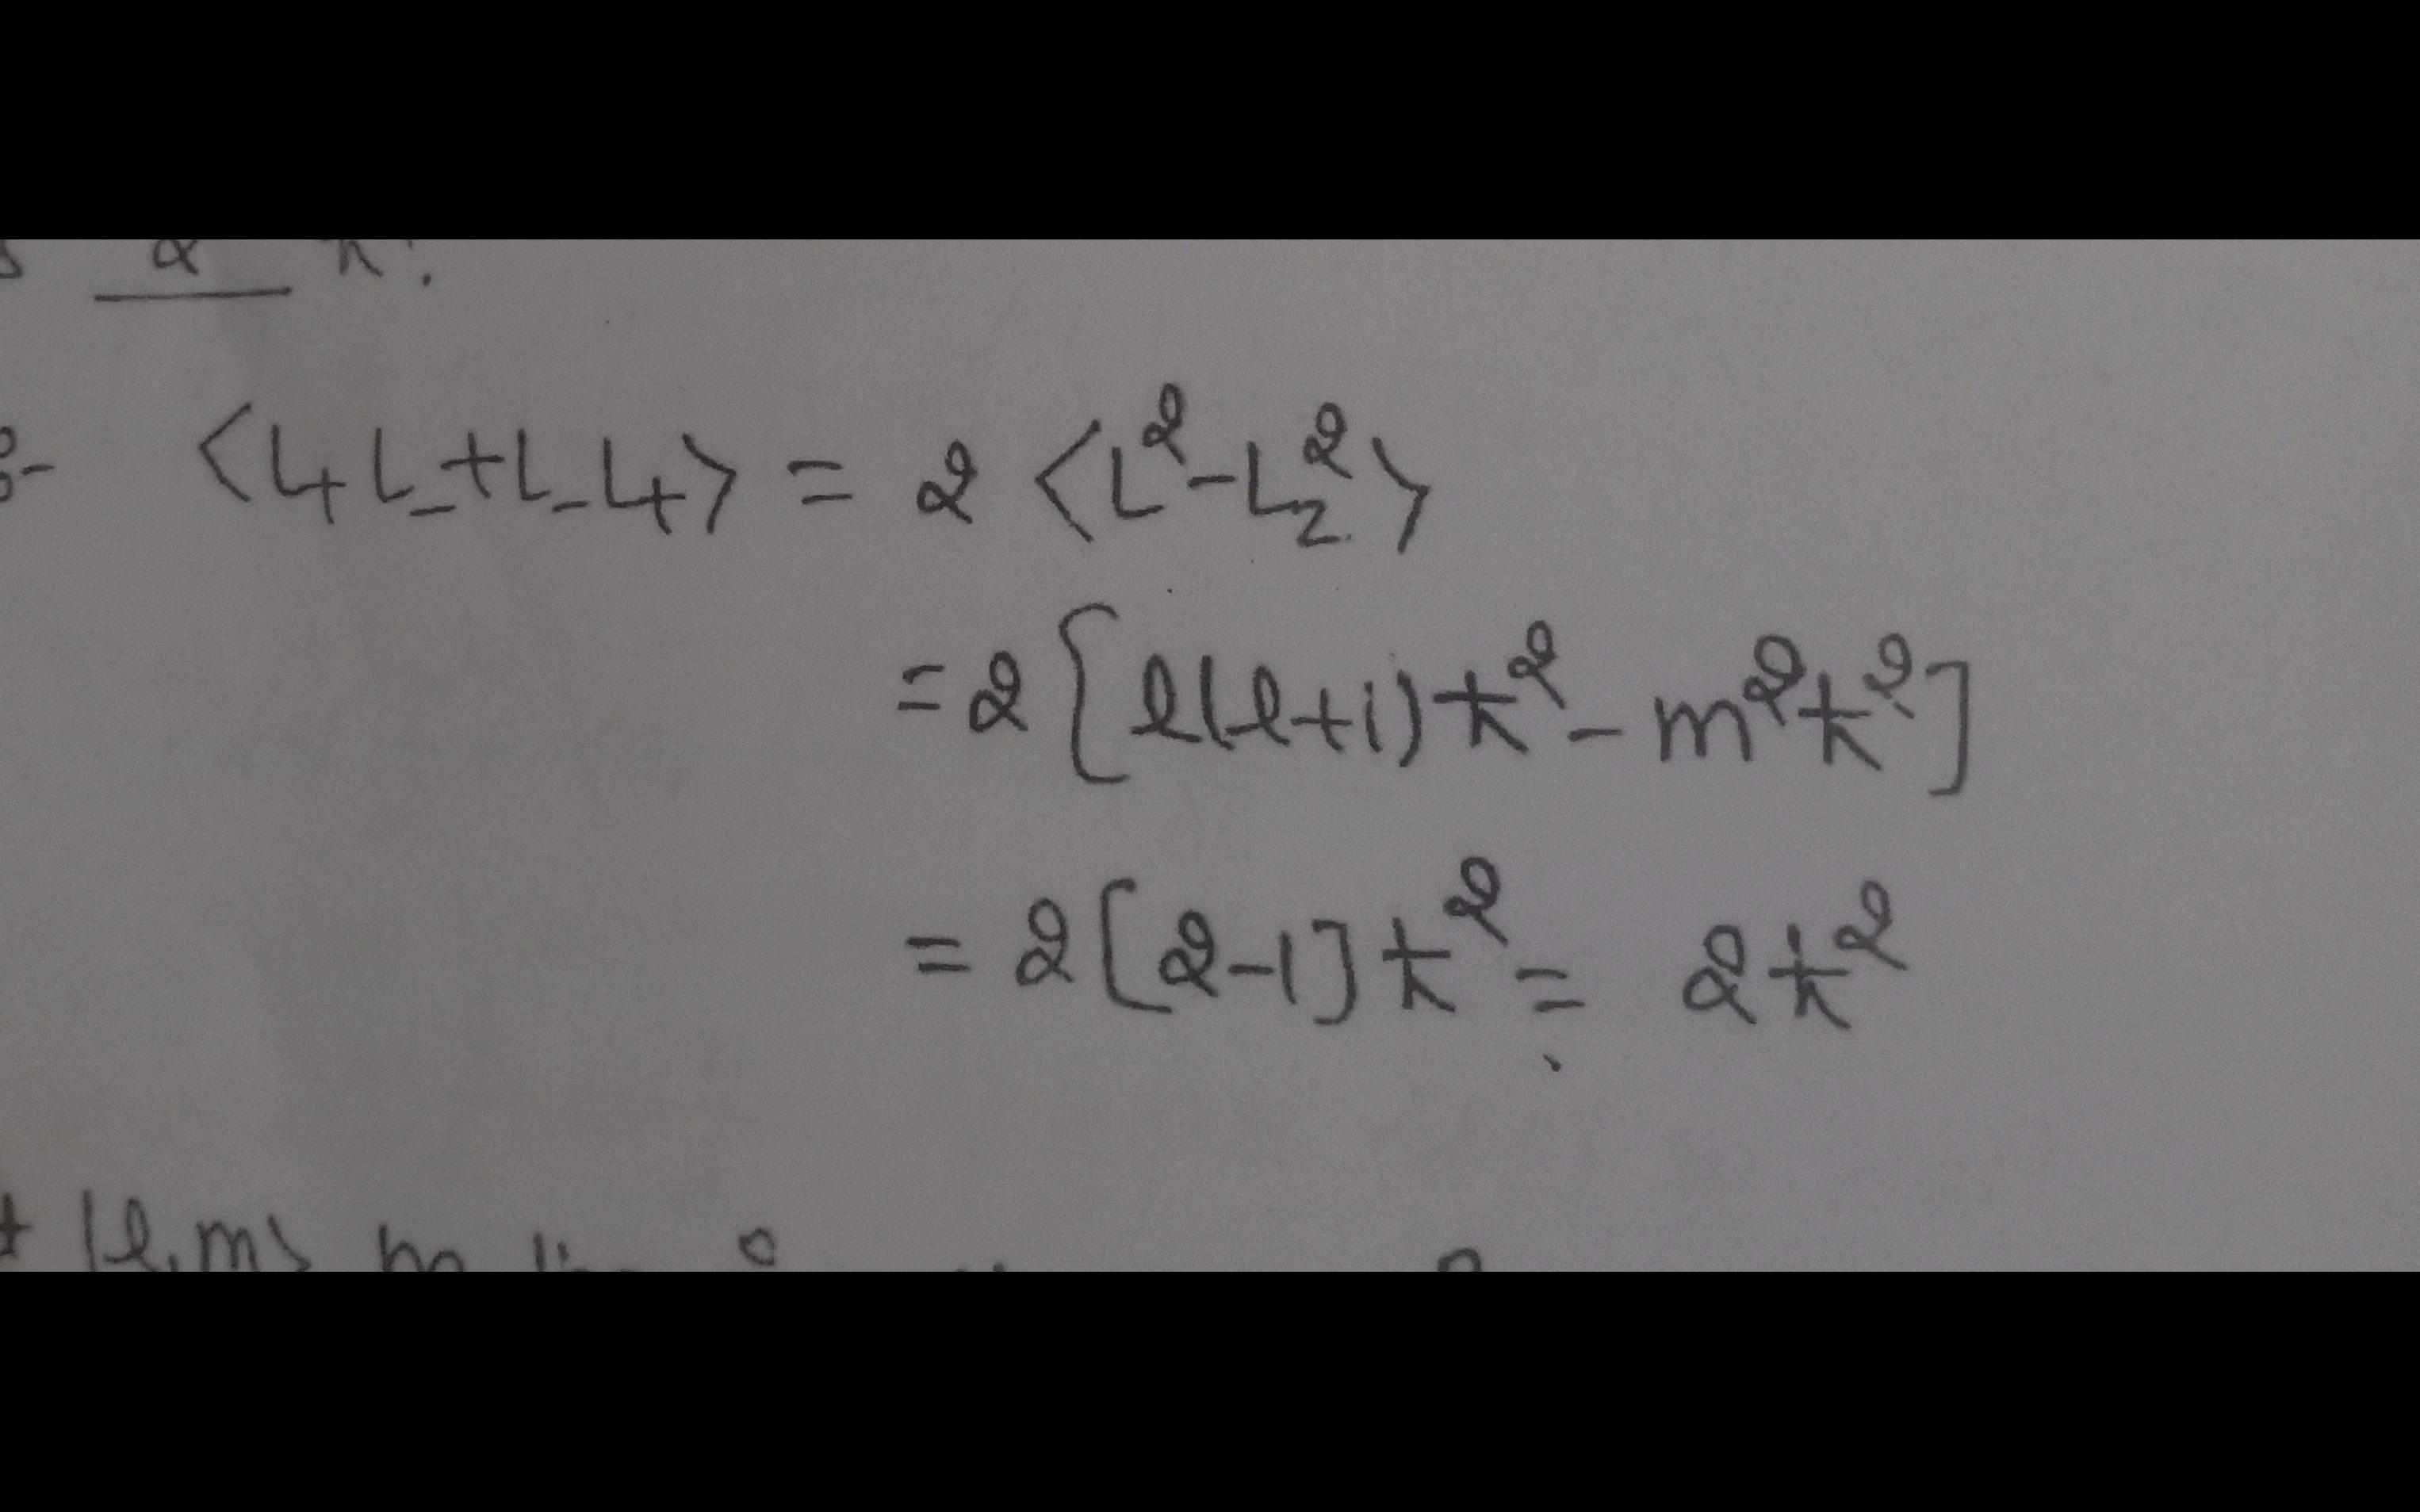 2 ħ.
:- <L₊L₋+L₋L₊> = 2 <L²-L_z²>
= 2 [l(l+1)ħ² - m²ħ²]
= 2[2-1]ħ² = 2ħ²
|l,m>